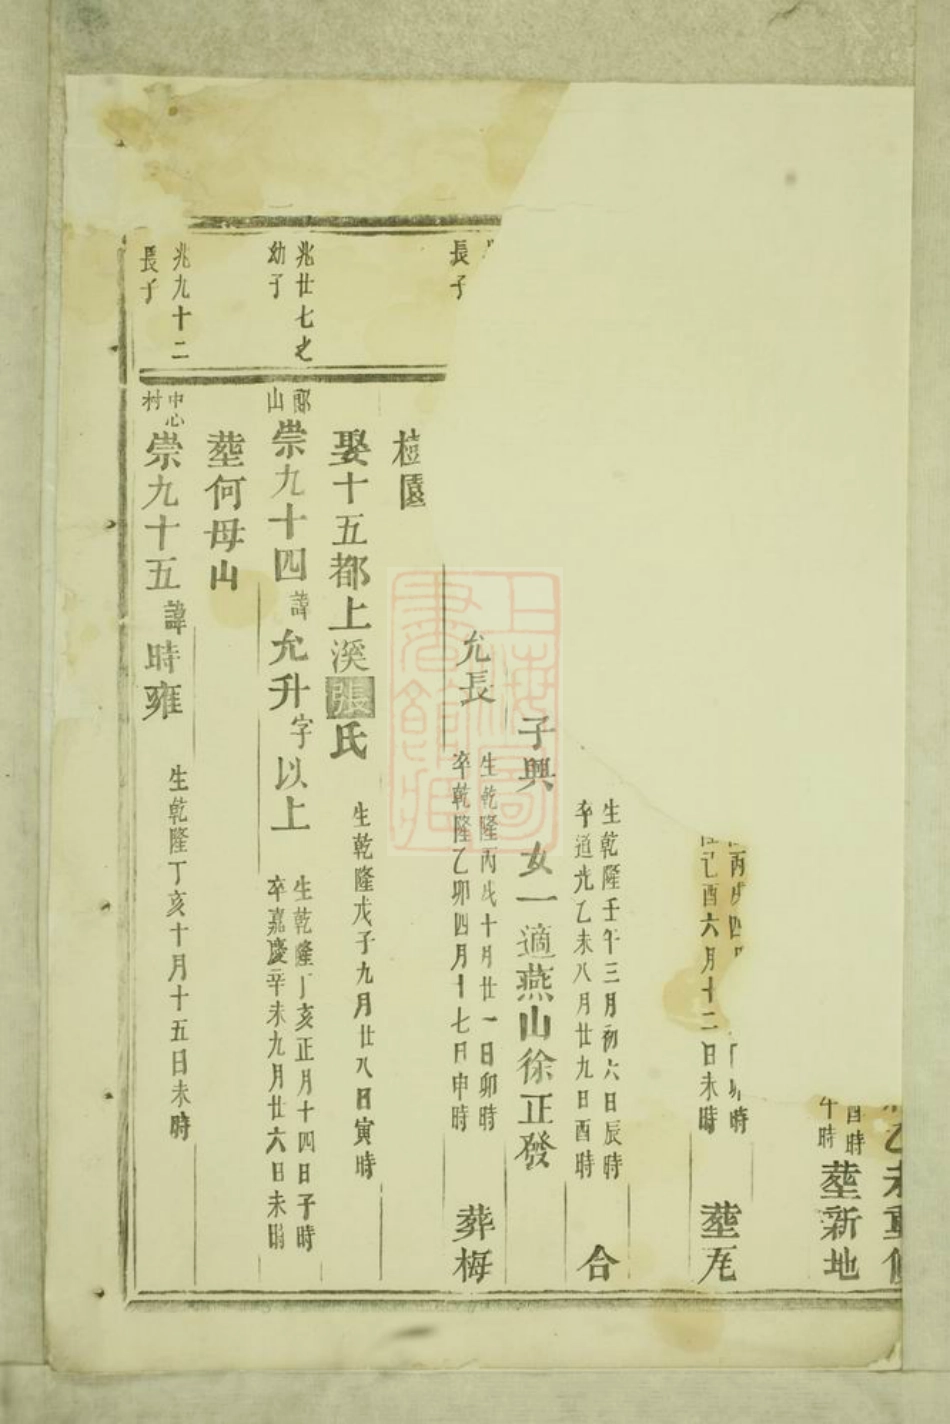 乙未重修
酉時
午時
塟新地
丙戌四
己酉六月十二日未時
塟
生乾隆壬午三月初六日辰時
卒道光乙未八月廿九日酉時
合
子興 女一適燕山徐正發
長子
允長
生乾隆丙戌十月廿一日卯時
卒乾隆乙卯四月十七日申時
葬梅
園
娶十五都上溪張氏
生乾隆戊子九月廿八日寅時
兆廿七之
幼子
鄌山
崇九十四諱允升字以上
生乾隆丁亥正月十四日子時
卒嘉慶辛未九月廿六日未時
塟何母山
兆九十二
長子
中心村
崇九十五諱時雍
生乾隆丁亥十月十五日未時